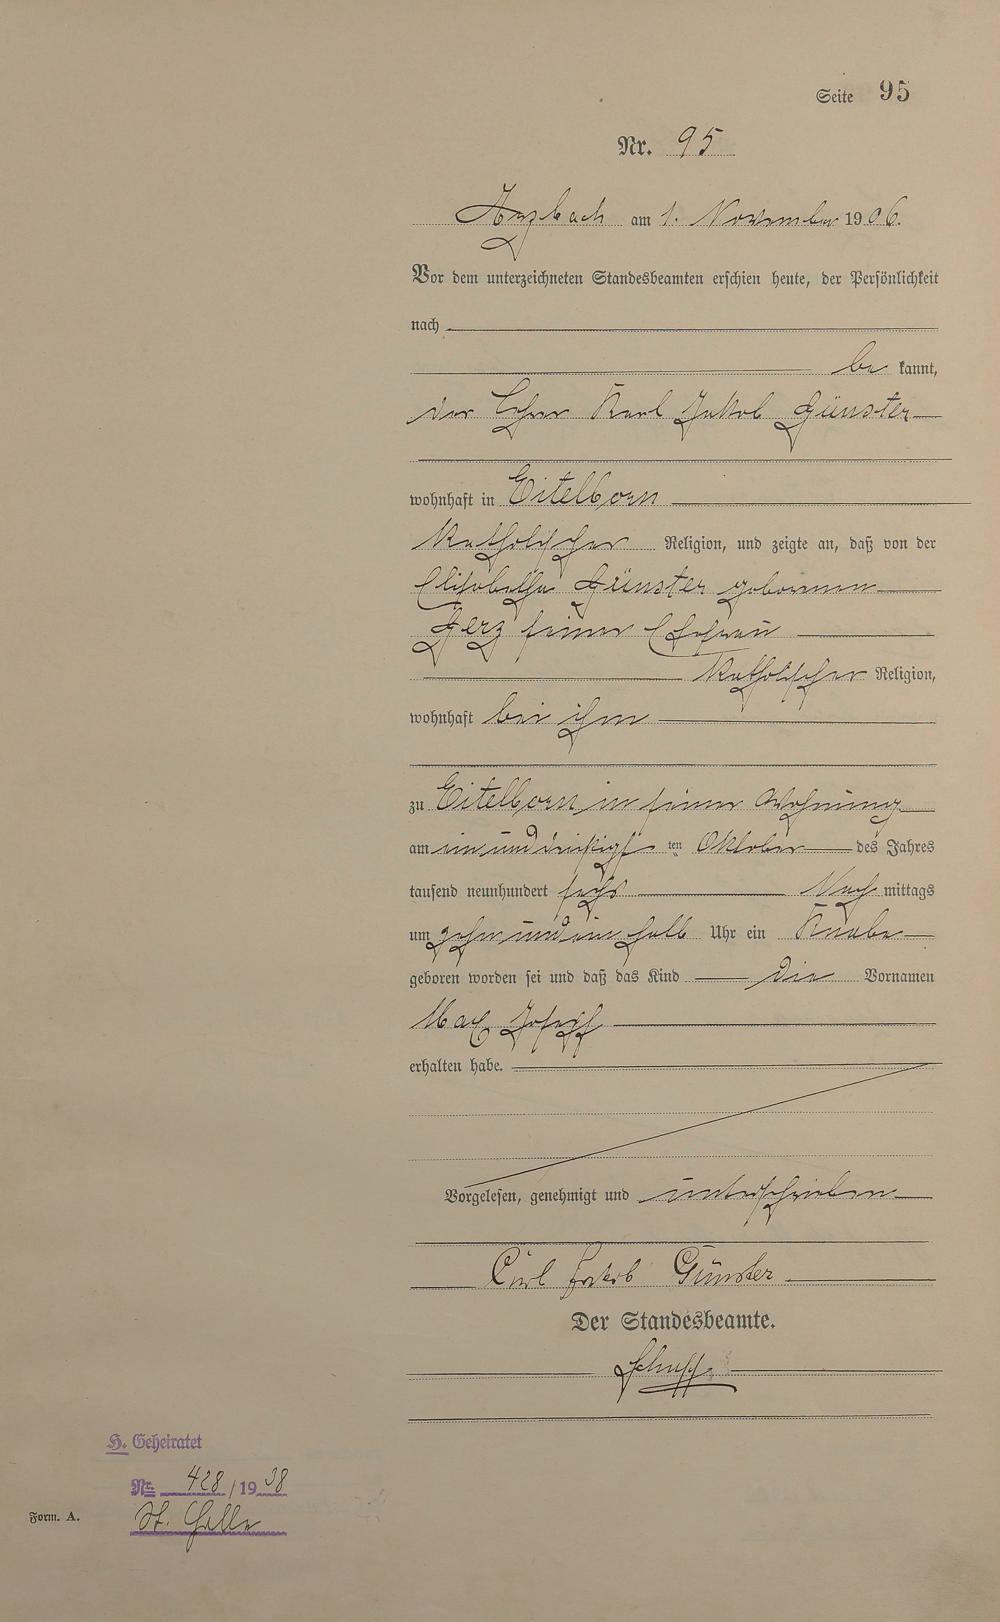 Seite 95
Nr. 95
Arzbach am 1. November 1906.
Vor dem unterzeichneten Standesbeamten erschien heute, der Persönlichkeit
nach
be kannt,
der Lehrer Karl Jakob Günster
wohnhaft in Eitelborn
katholischer Religion, und zeigte an, daß von der
Elisabetha Günster geborenen
Gerz seiner Ehefrau
katholischer Religion,
wohnhaft bei ihm
zu Eitelborn in seiner Wohnung
am ein und dreißigs ten Oktober des Jahres
tausend neunhundert sechs Nach mittags
um zehn und ein halb Uhr ein Knabe
geboren worden sei und daß das Kind die Vornamen
Max Josef
erhalten habe.
Vorgelesen, genehmigt und unterschrieben
Carl Jakob Günster
Der Standesbeamte.
H. Geheiratet
Nr. 428 / 1938
Form. A.